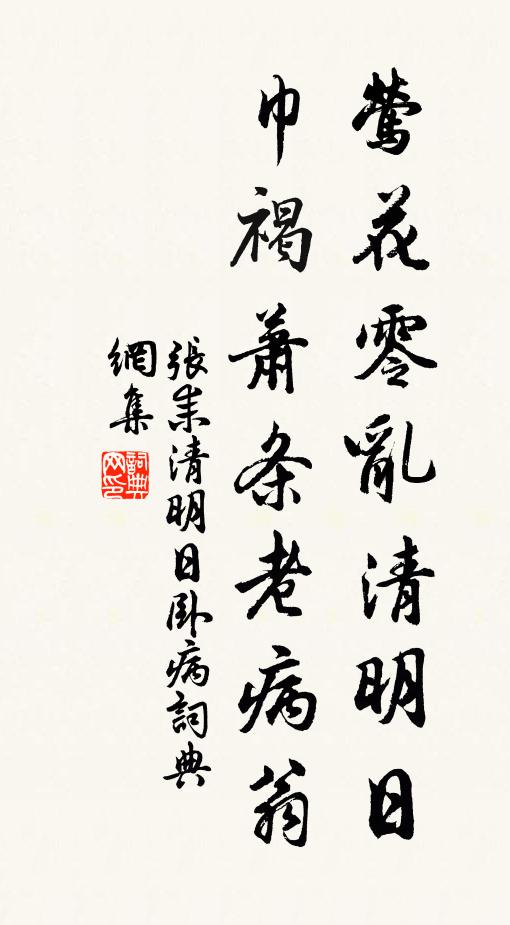 莺花零亂清明日
巾褐蕭条老病翁
張耒清明日卧病詞典
網集
詞典
网印